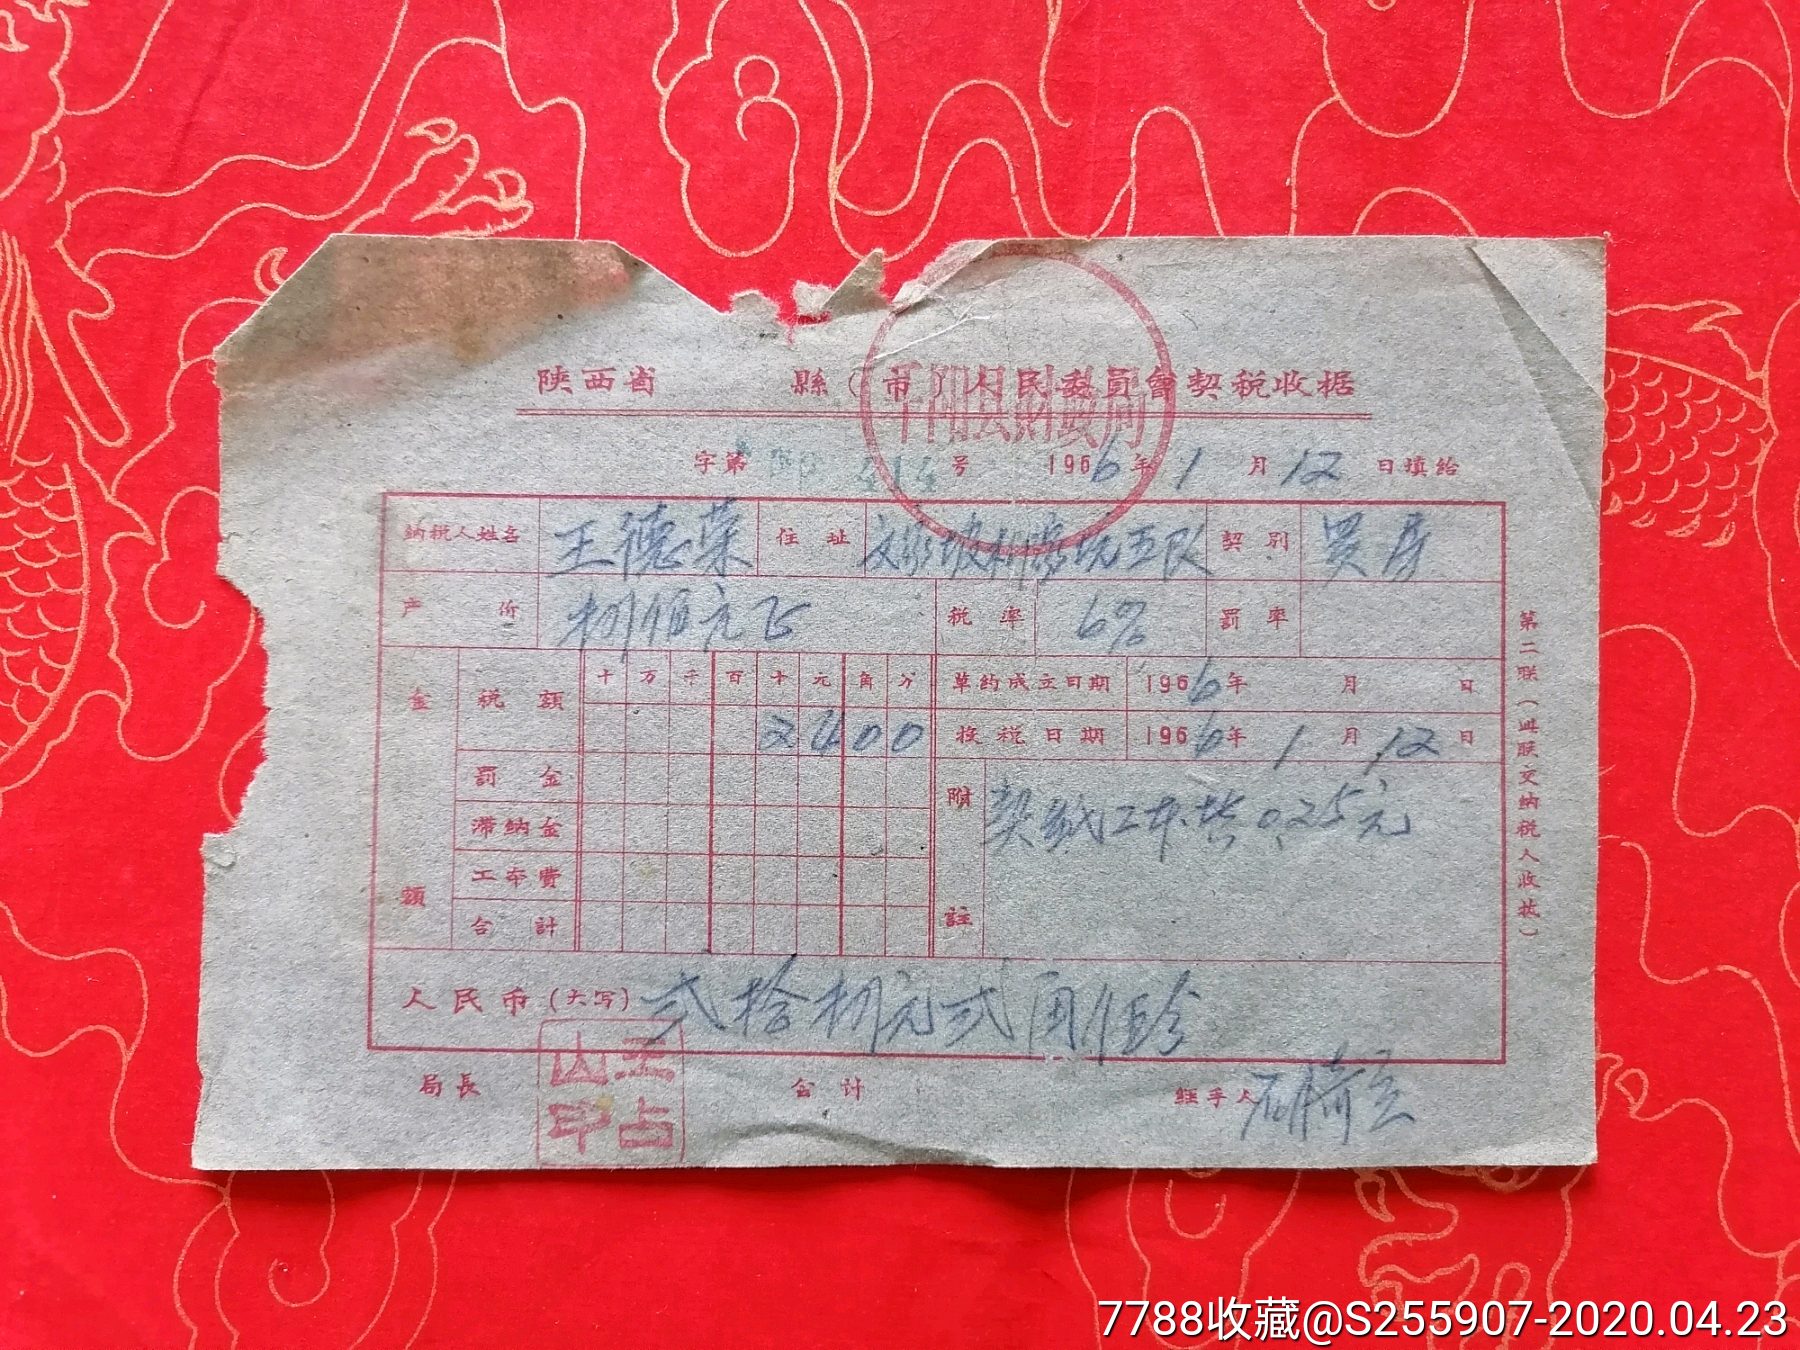 陕西省 縣(市)人民委員會契税收据
千阳县財政局
字第 号 1966年1月12日填給
納税人姓名 王德荣 住址 五队 契別 買房
产价 肆佰元正 税率 6% 罰率
金額 税額 十万千百十元角分 草約成立日期 1966年 月 日
2400 收税日期 1966年1月12日
罰金 附註 契紙工本费0.25元
滞納金
工本費
合計
人民币(大写) 弍拾肆元弍角伍分
第二联(此联交納税人收执)
局長 王占山印 会计 经手人
7788收藏@S255907-2020.04.23